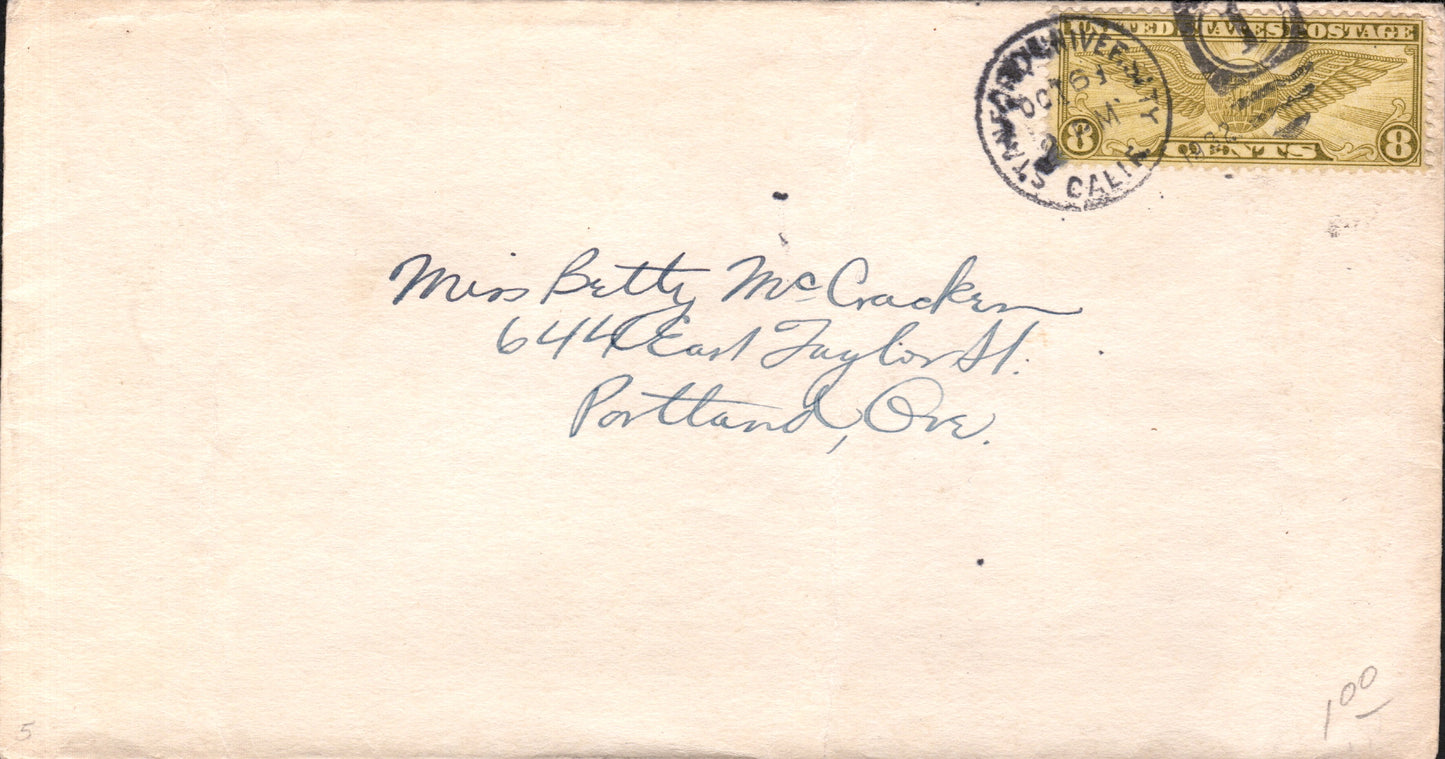 UNITED STATES POSTAGE
8 CENTS 8
STANFORD UNIVERSITY
OCT 6
M
1932
CALIF.
1
Miss Betty McCracken
644 East Taylor St.
Portland, Ore.
5
1.00